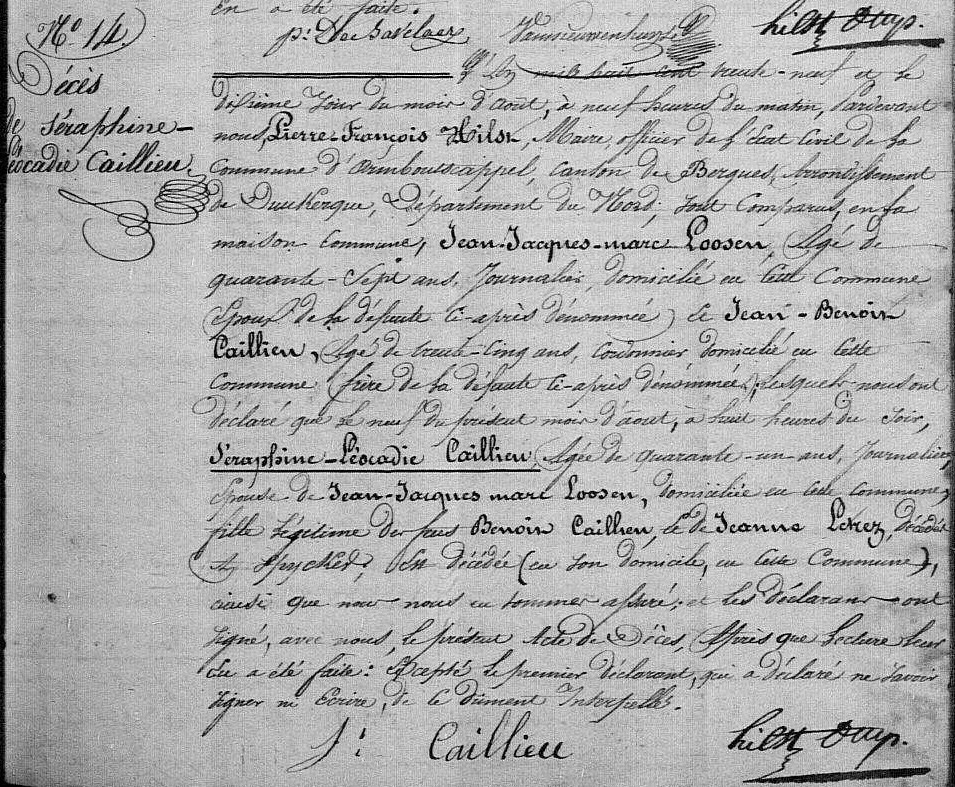 en a été faite.
hilst
N.º 14.
Décès
de Séraphine-
Léocadie Caillieu.
L'an mil huit cent trente-neuf et le
dixième jour du mois d'août, à neuf heures du matin, Pardevant
nous, Pierre-François Hilst, Maire, officier de l'État Civil de la
Commune d'Armboutscappel, canton de Bergues, Arrondissement
de Dunkerque, Département du Nord; sont Comparus, en la
maison commune, Jean-Jacques-marc Loosen, Agé de
quarante-Sept ans, Journalier, domicilié en Cette Commune
(Epoux de la défunte Ci-après dénommée) et Jean-Benoit
Caillieu, Agé de trente-Cinq ans, Cordonnier domicilié en Cette
Commune (frère de la défunte Ci-après dénommée), lesquels nous ont
déclaré que le neuf du présent mois d'août, à huit heures du Soir,
Séraphine-Léocadie Caillieu, Agée de quarante-un ans, Journalière,
Epouse de Jean-Jacques marc Loosen, domiciliée en Cette commune,
fille légitime des feus Benoit Caillieu, et de Jeanne Letrez, décédés
A Spycker, Est décédée (en son domicile, en Cette Commune),
ainsi que nous nous en sommes assuré; et les déclarans ont
signé, avec nous, le présent Acte de Décès, Après que lecture leur
En a été faite: Excepté le premier déclarant, qui a déclaré ne Savoir
Signer ni Ecrire, de Ce dûment Interpellé.
J: Caillieu
hilst